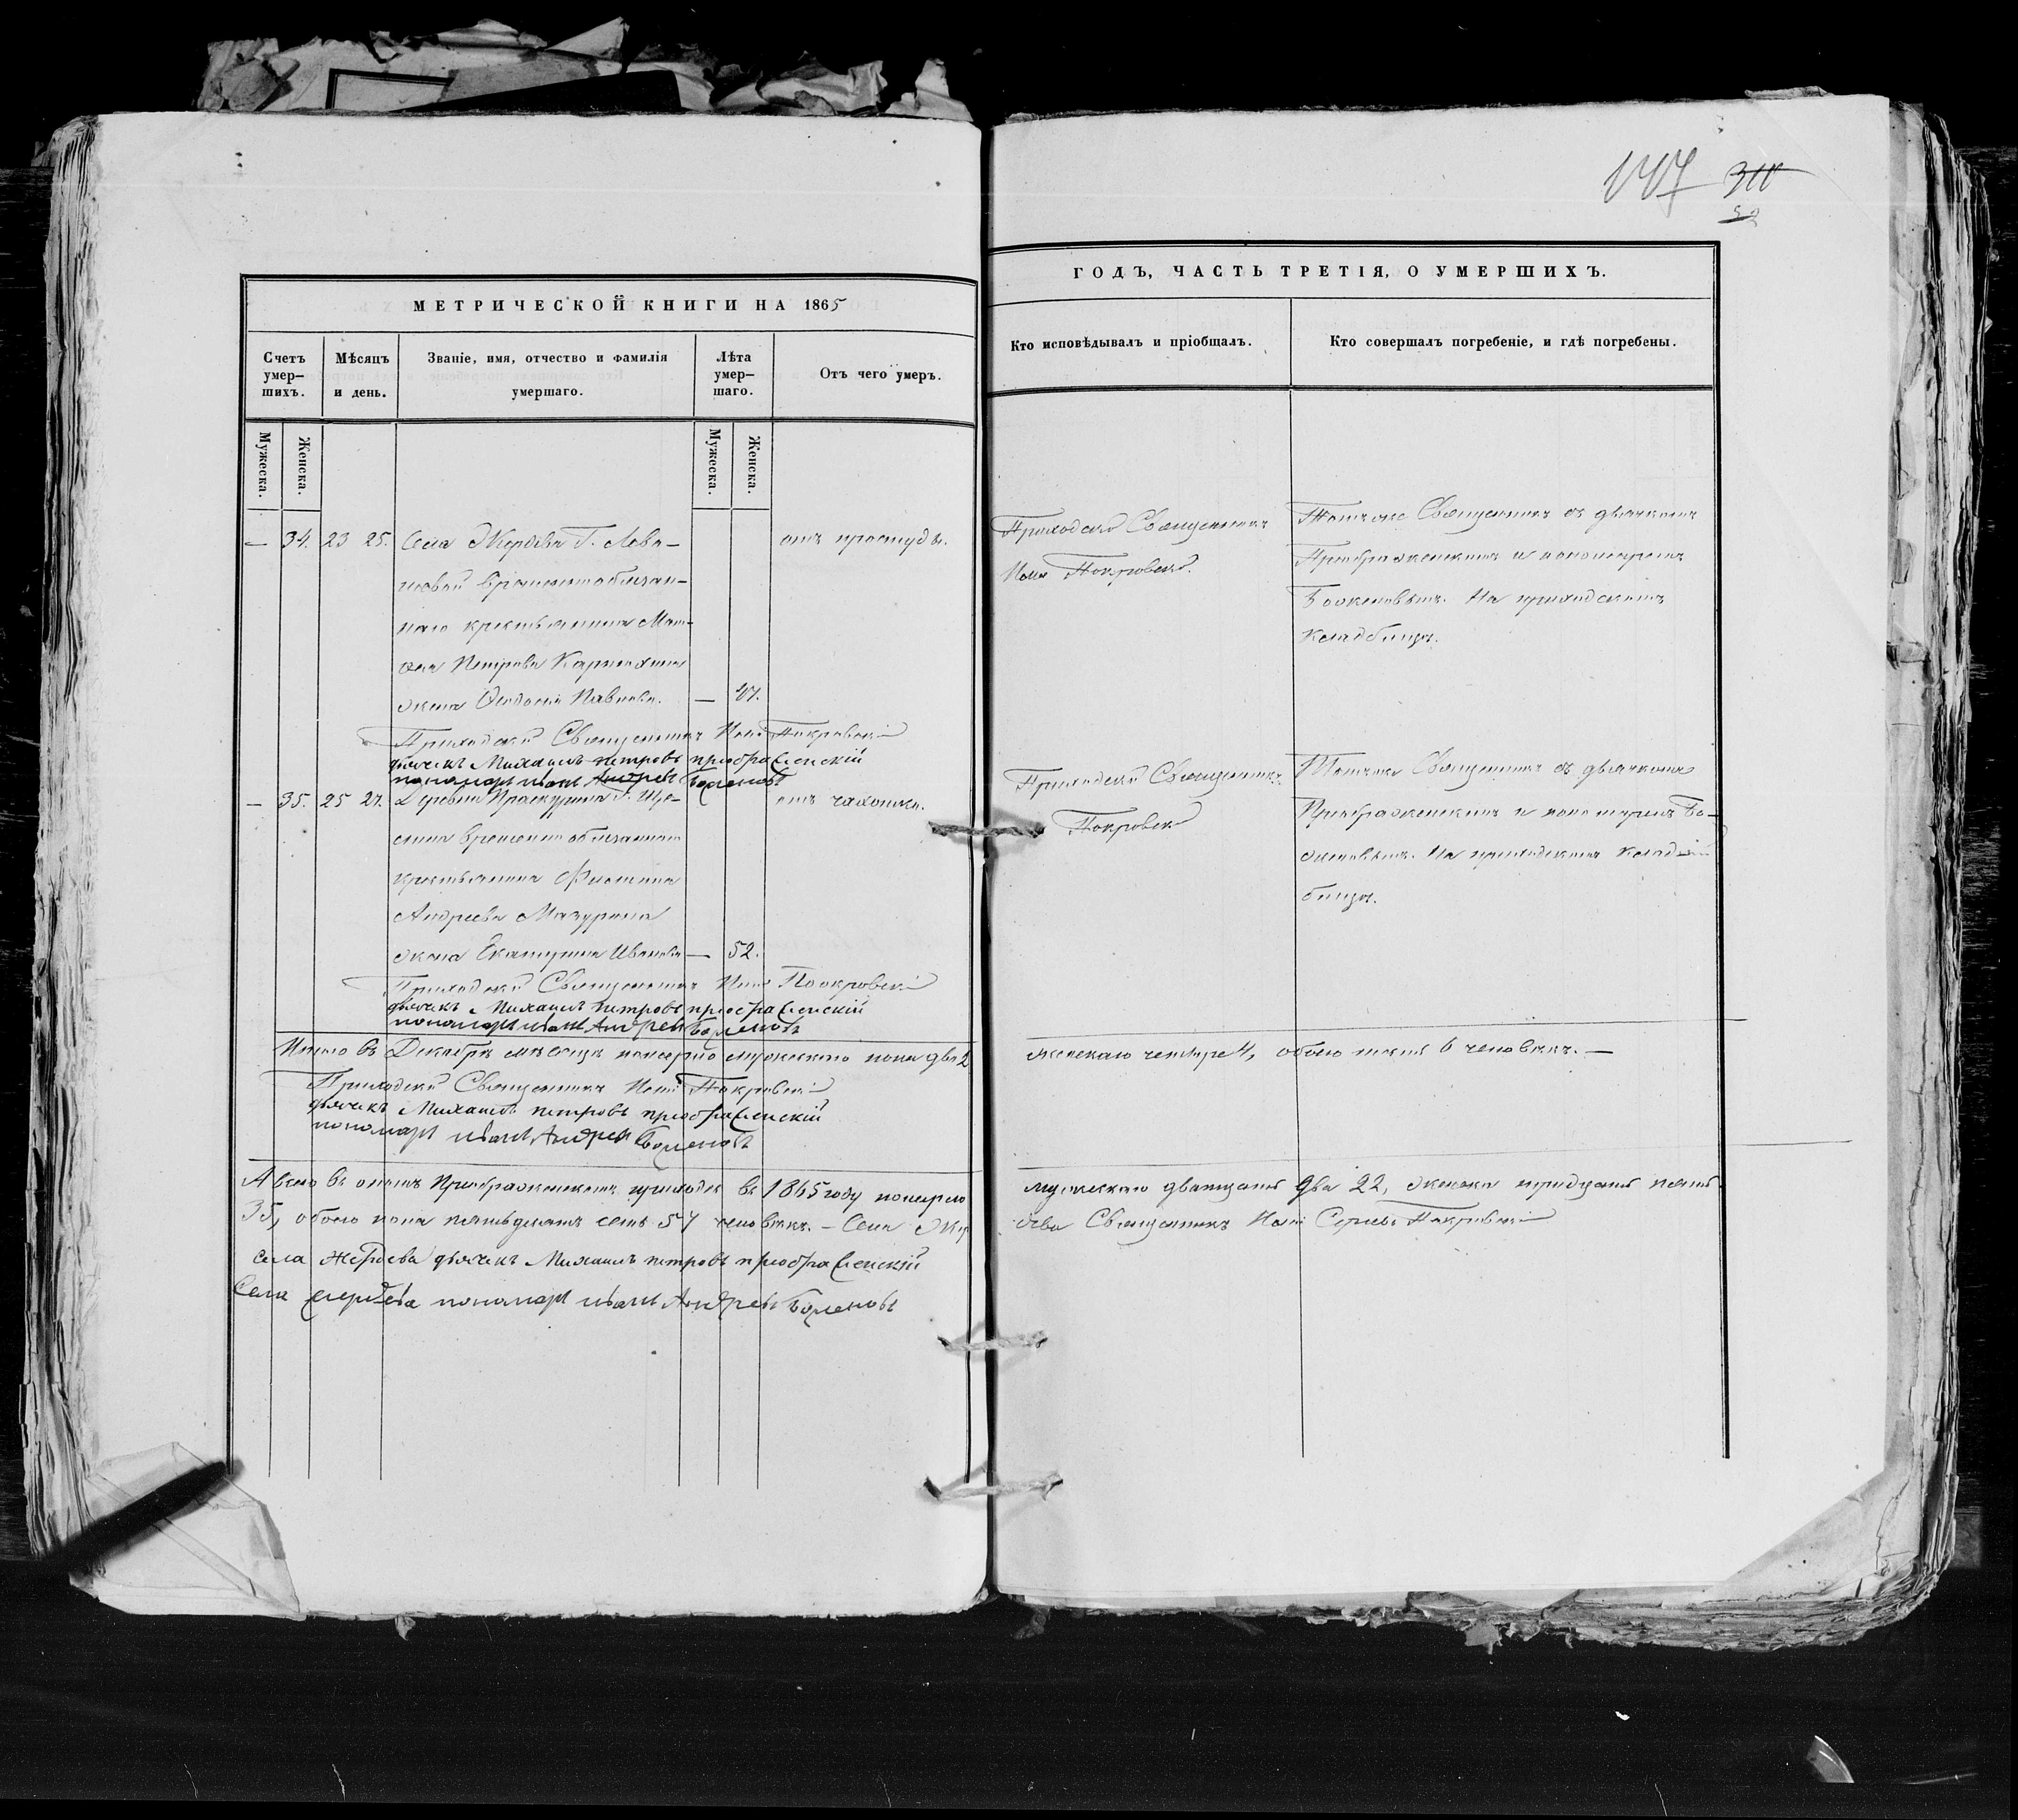 МЕТРИЧЕСКОЙ КНИГИ НА 1865
Счетъ умер–шихъ.
Мѣсяцъ и день.
Званіе, имя, отчество и фамилія умершаго.
Лѣта умер–шаго.
Отъ чего умеръ.
Мужеска.
Женска.
Мужеска.
Женска.
— 34. 23 25. Села Жердева Г. Лева– отъ простуды.
шовой временнообязан–
наго крестьянина Мат–
вея Петрова
жена Федосья Павлова. — 47.
Приходскій Священникъ Покровскій
дьячекъ Михаилъ петровъ преображенскій
пономарь иванъ Андреевъ Боженовъ
— 35. 25 27. Деревни Проскурина Г. отъ чахотки.
временно обязаннаго
крестьянина
Андреева Мазурина
жена Екатерина Иванова — 52.
Приходскій Священникъ Покровскій
дьячекъ Михаилъ петровъ преображенскій
пономарь иванъ Андреевъ Боженовъ
Итого въ Декабрѣ мѣсяцѣ померло мужескаго пола два 2
Приходскій Священникъ Покровскій
дьячекъ Михаилъ петровъ преображенскій
пономарь иванъ Андреевъ Боженовъ
А всего въ ономъ Преображенскомъ приходѣ въ 1865 году померло
35, обоего пола пятьдесятъ семь 57 человѣкъ. – Села Жер
села жердева дьячекъ Михаилъ петровъ преображенскій
Села жердева пономарь иванъ Андреевъ Боженовъ
147 311
ГОДЪ, ЧАСТЬ ТРЕТІЯ, О УМЕРШИХЪ.
Кто исповѣдывалъ и пріобщалъ.
Кто совершалъ погребеніе, и гдѣ погребены.
Приходскій Священникъ
Покровскій.
Тотъ же Священникъ съ дьячкомъ
Преображенскимъ и пономаремъ
Боженовымъ. На приходскомъ
кладбищѣ.
Приходскій Священникъ
Покровскій
Тотъ же Священникъ съ дьячкомъ
Преображенскимъ и пономаремъ Бо–
женовымъ. На приходскомъ клад
бищѣ.
женскаго четыре 4, обоего пола 6 человѣкъ. —
мужескаго двадцать два 22, женска тридцать пять
дева Священникъ Сергѣевъ Покровскій